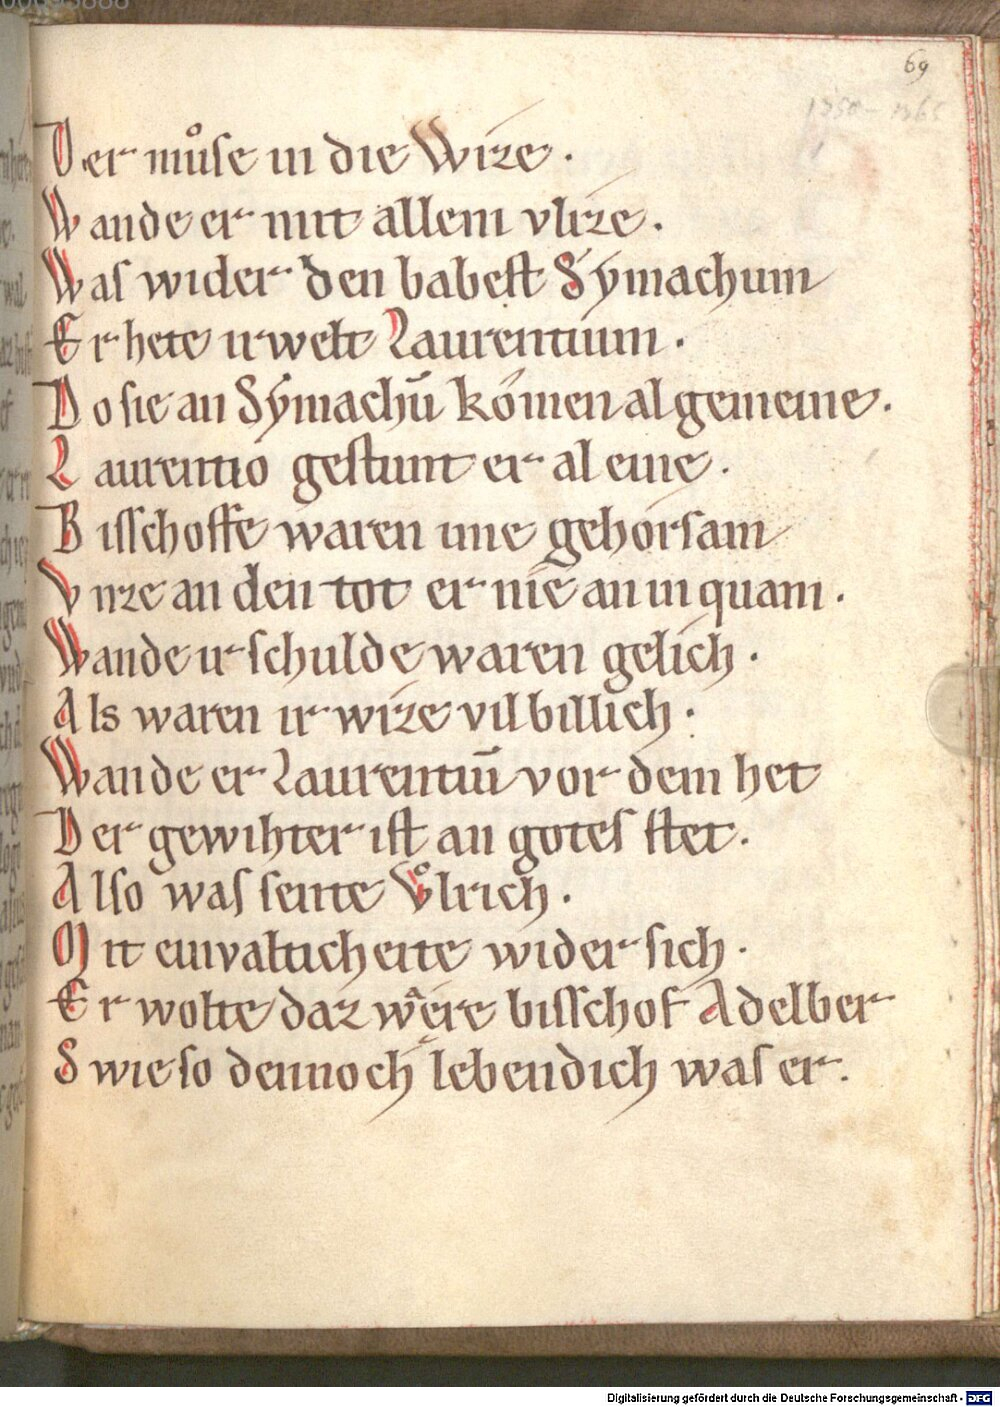 69
1350 - 1365
Der můse in die Wize ·
Wande er mit allem vlize ·
Was wider den babest Symachum
Er hete irwelt Laurentium ·
Do sie an Symachū kómen algemeine ·
Laurentio gestunt er al eine ·
Bisschoffe waren ime gehórsam
Vnze an den tot er nie an in quam ·
Wande ir schulde waren gelich ·
Als waren ir wize vil billich ·
Wande er Laurentiū vor dem het
Der gewihter ist an gotes stet ·
Also was sente Vͦlrich ·
Mit einvalticheite wider sich ·
Er wolte daz wêre bisschof Adelber
Swie so dennoch lebendich was er ·
Digitalisierung gefördert durch die Deutsche Forschungsgemeinschaft - DFG